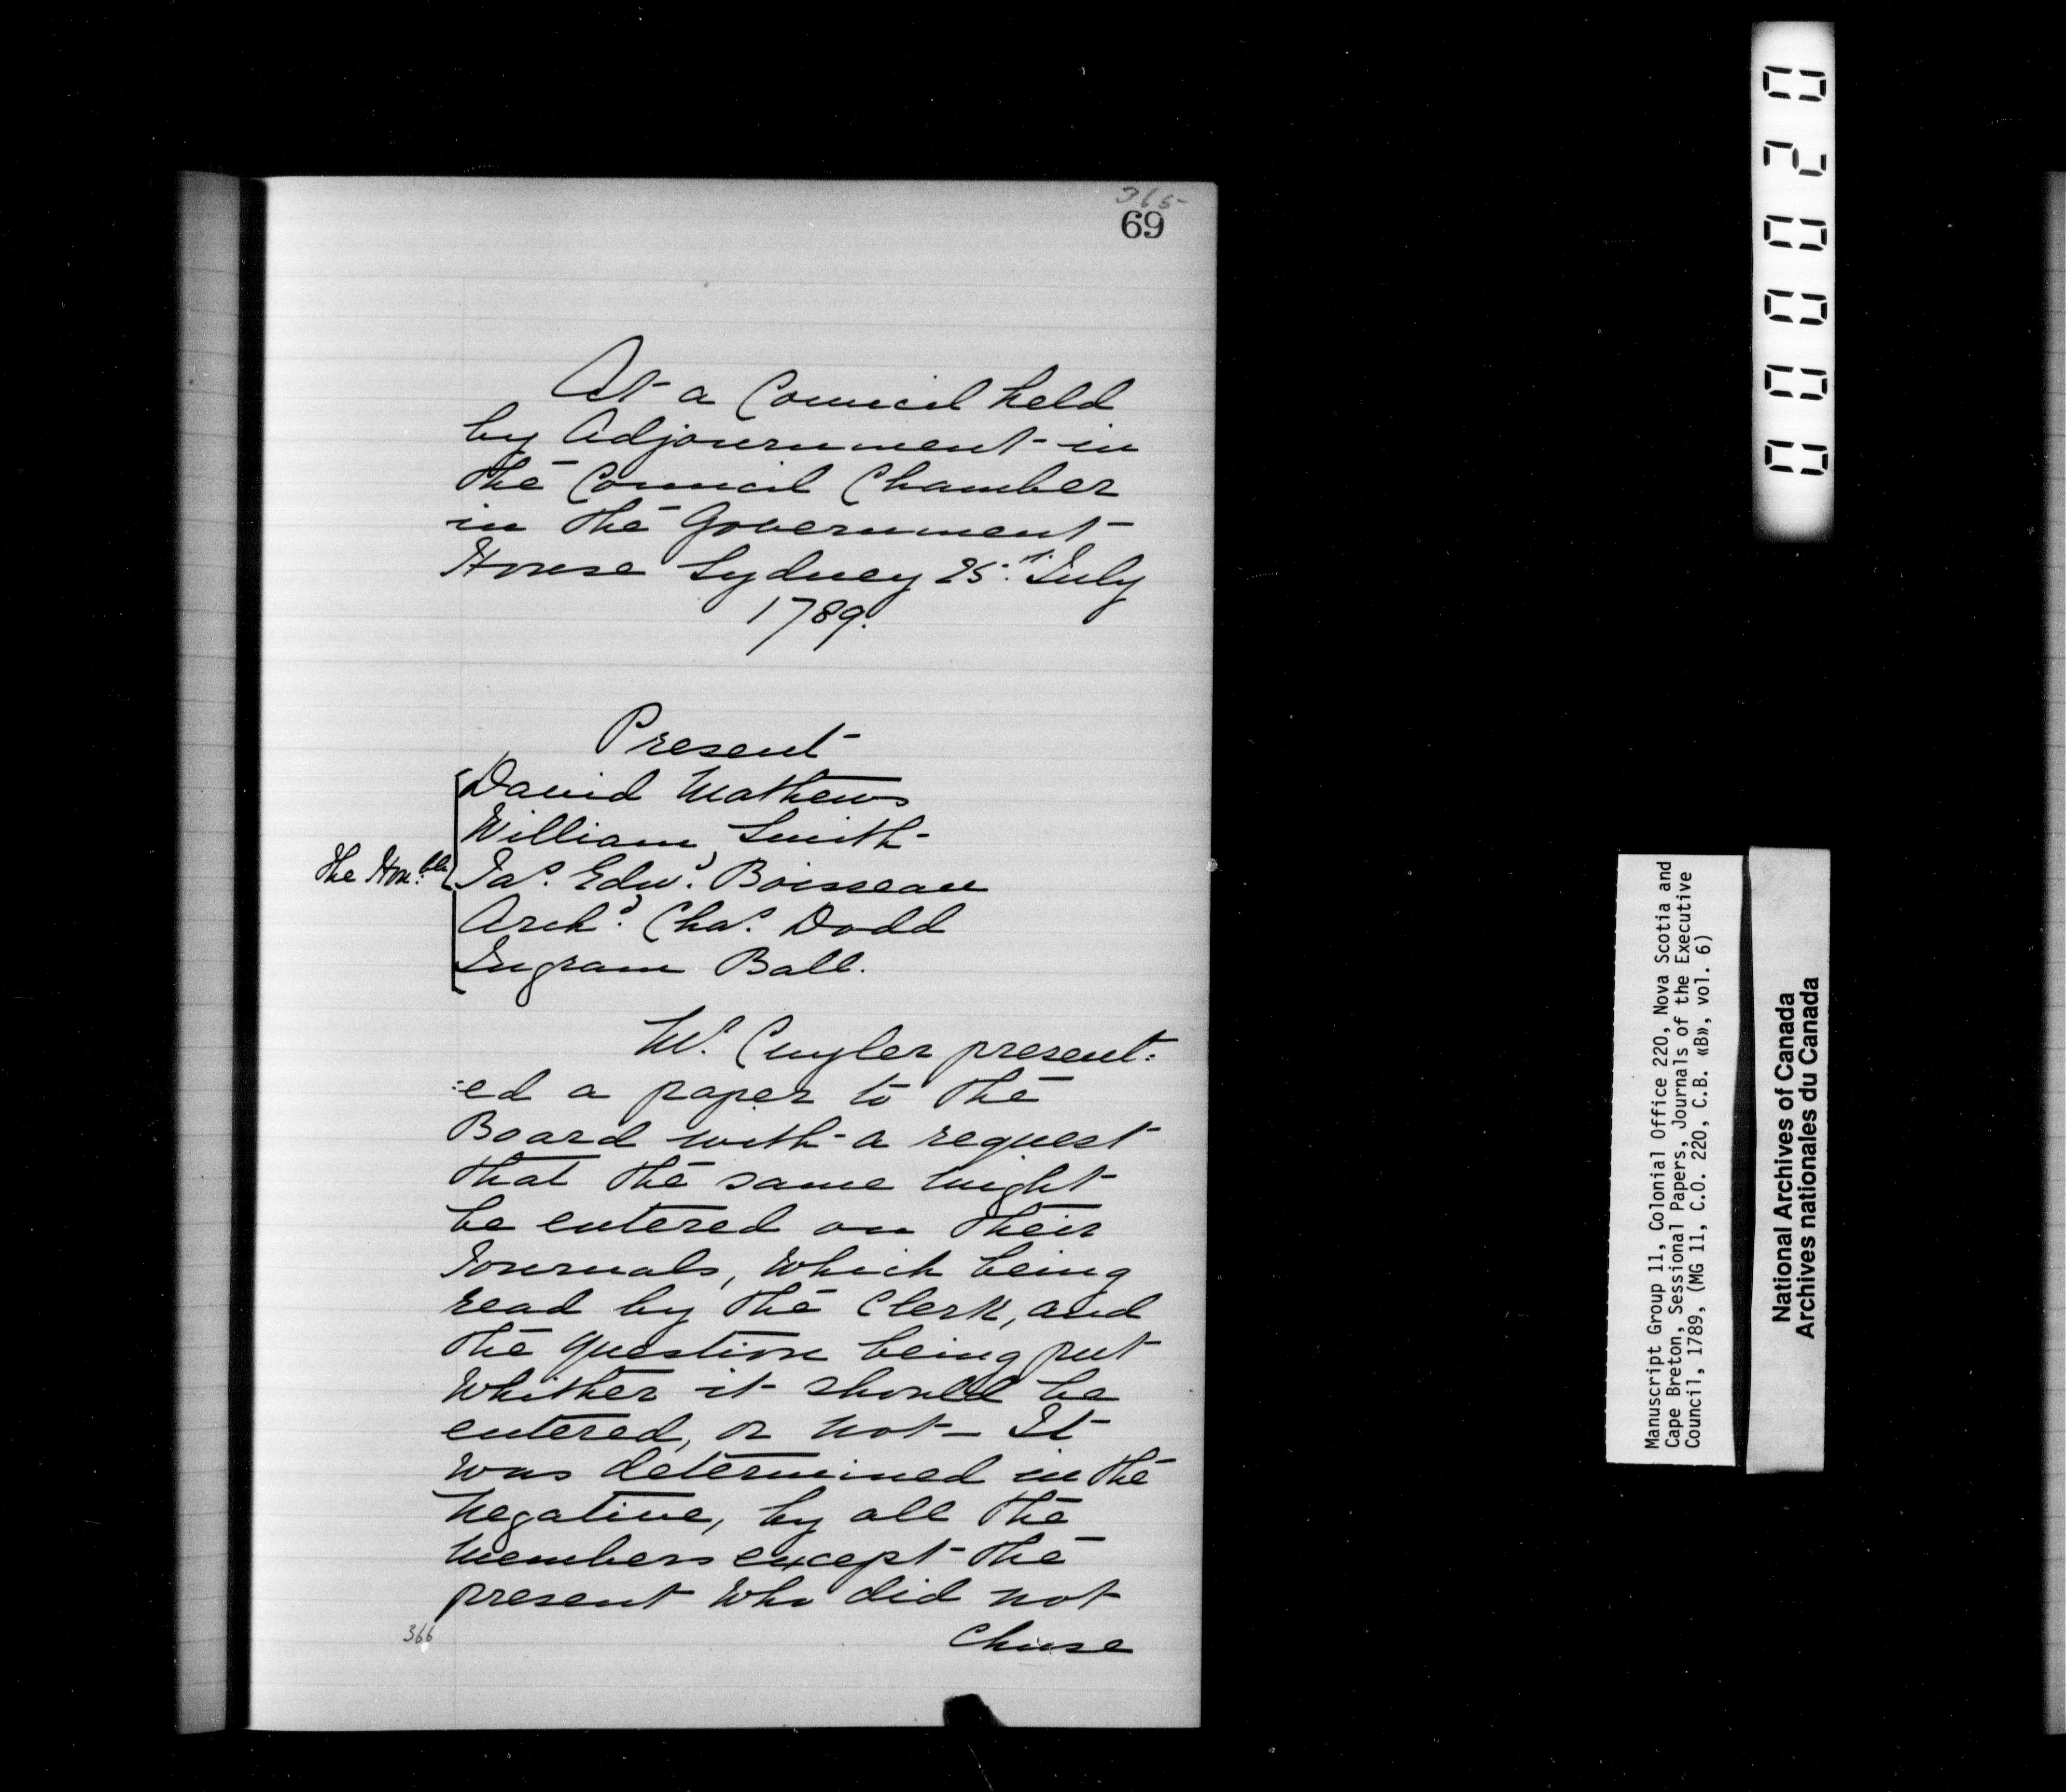 365
69
At a Council held
by Adjournment in
the Council Chamber
in the Government
House Sydney 25.t July
1789.
Present
The Hon.ble
David Mathews
William Smith
Jas. Edwd. Boisseau
Archd. Chas. Dodd
Ingram Ball.
Mr. Cuyler present:
:ed a paper to the
Board with a request
that the same might
be entered on their
Journals, which being
read by the Clerk, and
the question being put
whither it should be
entered, or not - It
was determined in the
negative, by all the
members except the
present who did not
366
Chuse
000020
Manuscript Group 11, Colonial Office 220, Nova Scotia and
Cape Breton, Sessional Papers, Journals of the Executive
Council, 1789, (MG 11, C.O. 220, C.B. «B», vol. 6)
National Archives of Canada
Archives nationales du Canada